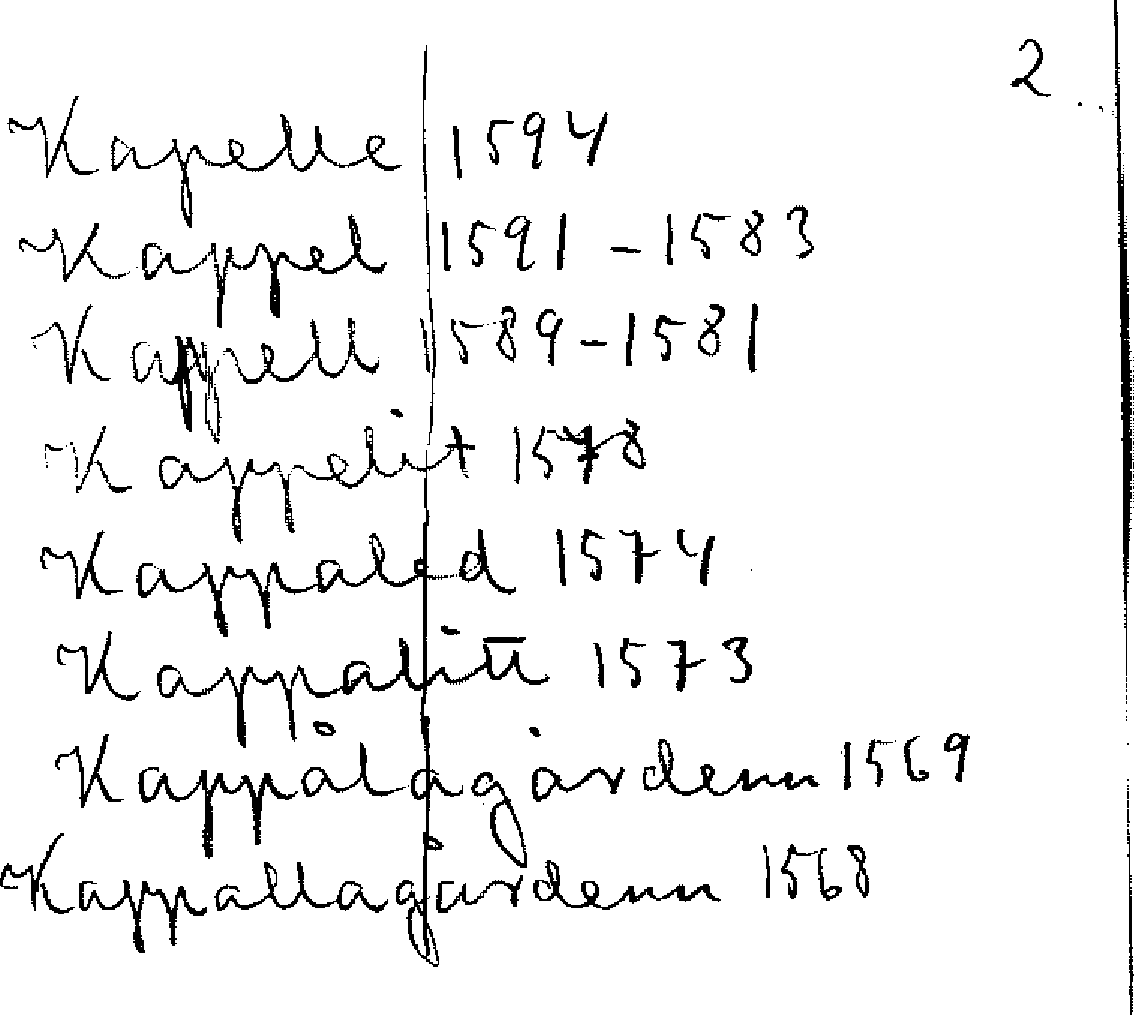 2
Kapelle 1594
Kappel 1591-1583
Kappell 1589-1581
Kappelit 1578
Kappaled 1574
Kappalitt 1573
Kappålagårdenn 1569
Kappallagårdenn 1568